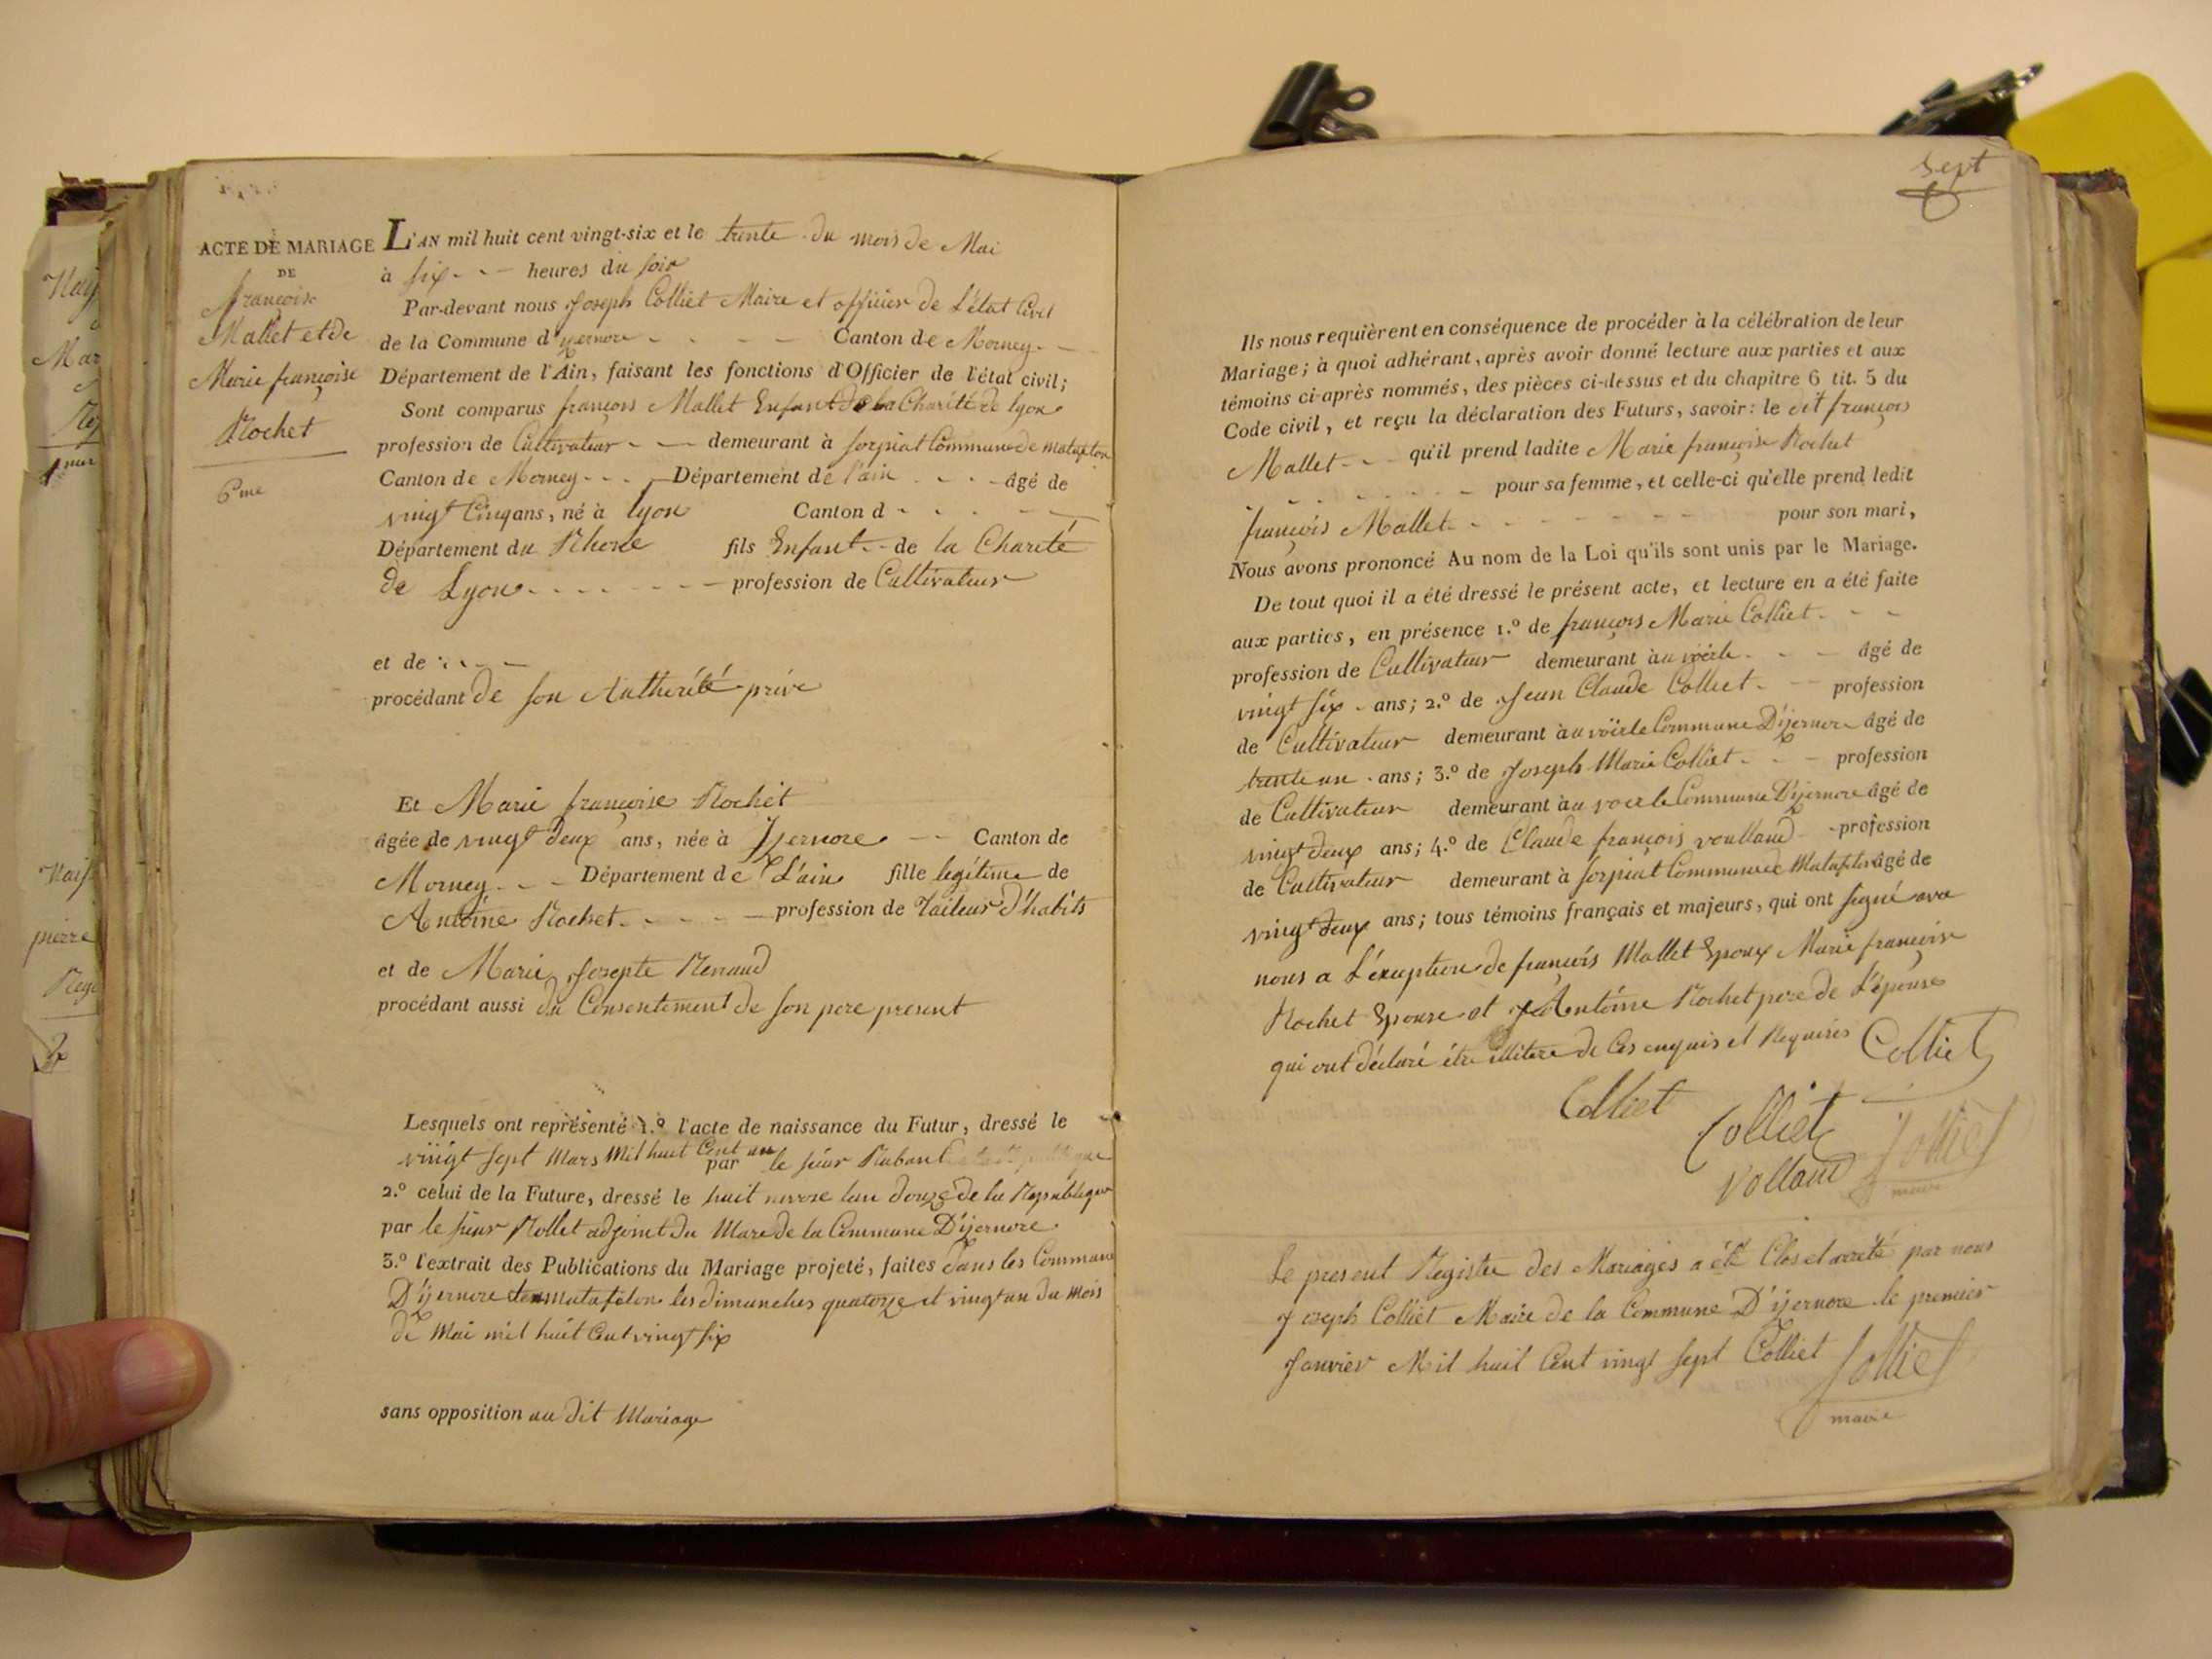 ACTE DE MARIAGE
DE
françoise
Mallet et de
Marie françoise
Rochet
6me
L'AN mil huit cent vingt-six et le trente du mois de Mai
à six heures du soir
Par-devant nous Joseph Colliet Maire et officier de L'état Civil
de la Commune d'yernore Canton de Morney
Département de l'Ain, faisant les fonctions d'Officier de l'état civil;
Sont comparus françois Mallet Enfant de la Charité de lyon
profession de Cultivateur demeurant à sorpiat Commune de matafelon
Canton de Morney Département de l'ain âgé de
vingt Cinq ans, né à lyon Canton d
Département du Rhone fils Enfant de la Charité
de Lyon profession de Cultivateur
et de
procédant de son Authorité privé
Et Marie françoise Rochet
âgée de vingt deux ans, née à Yernore Canton de
Morney Département de L'ain fille legitime de
Antoine Rochet profession de Taileur d'habits
et de Marie Josepte Renaud
procédant aussi du Consentement de son pere present
Lesquels ont représenté 1.º l'acte de naissance du Futur, dressé le
vingt sept Mars Mil huit Cent un par le sieur Ruban
2.º celui de la Future, dressé le huit nivose lan douze de la Republique
par le sieur Rollet adjoint du Mare de la Commune D'yernore
3.º l'extrait des Publications du Mariage projeté, faites dans les Commune
D'yernore matafelon les dimanches quatorze et vingt un du mois
de Mai mil huit Cent vingt six
sans opposition au dit Mariage
Sept
Ils nous requièrent en conséquence de procéder à la célébration de leur
Mariage; à quoi adhérant, après avoir donné lecture aux parties et aux
témoins ci-après nommés, des pièces ci-dessus et du chapitre 6 tit. 5 du
Code civil, et reçu la déclaration des Futurs, savoir: le dit françois
Mallet qu'il prend ladite Marie françoise Rochet
pour sa femme, et celle-ci qu'elle prend ledit
françois Mallet pour son mari,
Nous avons prononcé Au nom de la Loi qu'ils sont unis par le Mariage.
De tout quoi il a été dressé le présent acte, et lecture en a été faite
aux parties, en présence 1.º de françois Marie Colliet
profession de Cultivateur demeurant à au voërle âgé de
vingt six ans; 2.º de Jean Claude Colliet profession
de Cultivateur demeurant à au voërle Commune D'yernore âgé de
trente un ans; 3.º de Joseph Marie Colliet profession
de Cultivateur demeurant à au voerle Commune D'yernore âgé de
vingt deux ans; 4.º de Claude françois voulland profession
de Cultivateur demeurant à sorpiat Commune de Matafelon âgé de
vingt deux ans; tous témoins français et majeurs, qui ont signé avec
nous a L'exception de françois Mallet Epoux Marie françoise
Rochet Epouse et Antoine Rochet pere de L'épouse
qui ont déclaré être illitere de Ces enquis et Requises Colliet
Colliet
Colliet
Volland
Jolliet
maire
Le present Registre des Mariages a été Clos et arrêté par nous
Joseph Colliet Maire de la Commune D'yernore le premier
Janvier Mil huit Cent vingt sept Colliet
Jolliet
maire
Mar
pierre